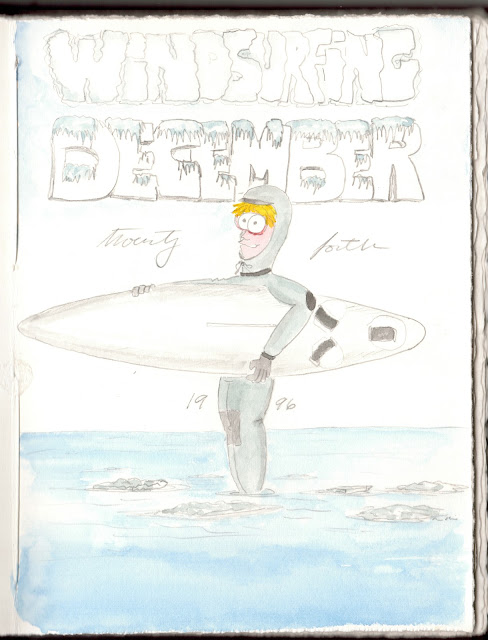 WINDSURFING
DECEMBER
twenty forth
19 96